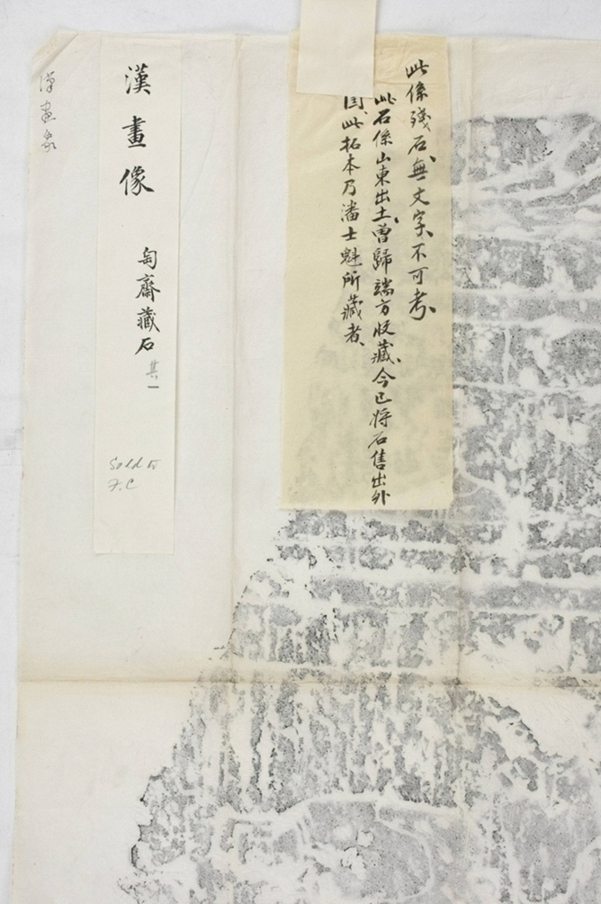 此係殘石、無文字、不可考、
此石係山東出土、曾歸端方收藏、今已將石售出外
國、此拓本乃潘士魁所藏者、
漢畫像
匋齋藏石 其一
Sold to
F.C
漢畫象